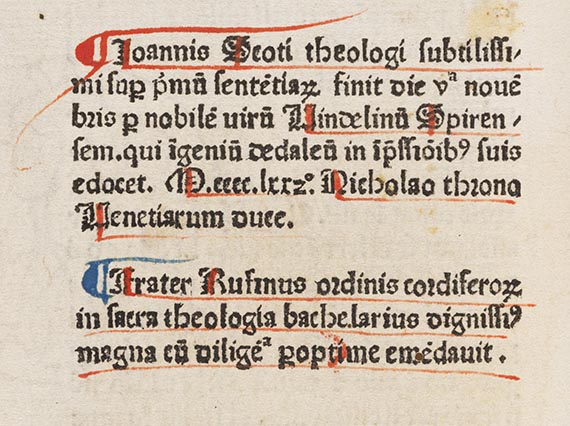 ¶ Joannis Scoti theologi subtilissi⸗
mi suꝑ p̃mũ sentẽtiaꝝ finit die vª nouẽ
bris ꝑ nobilẽ uirũ Uindelinũ Spiren⸗
sem. qui ĩgeniũ dedaleũ in ĩp̃ssiõibꝰ suis
edocet. M.cccc.lxxz°. Nicholao throno
Uenetiarum duce.
¶ Frater Rufinus ordinis cordiferoꝝ
in sacra theologia bachelarius dignissiꝰ
magna cũ diligẽª ꝑoptime emẽdauit.